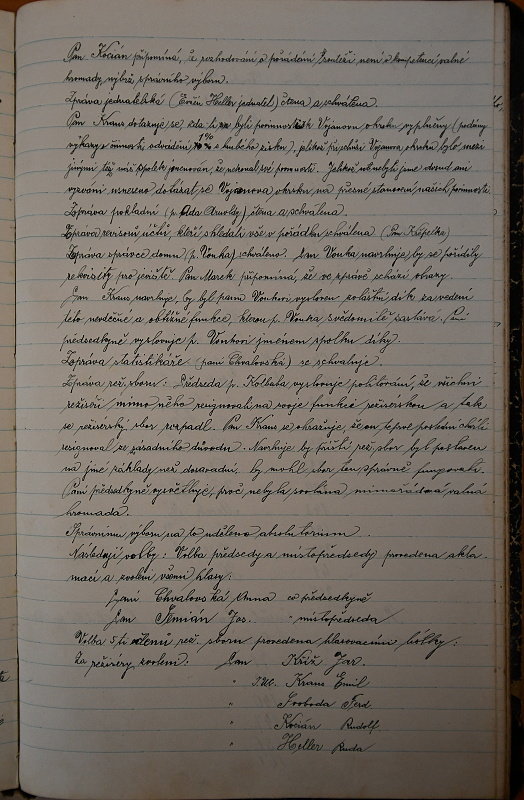 Pan Kocián připomíná, že rozhodování o pořádání soutěží není v kompetenci valné
hromady nýbrž správního výboru.
Zpráva jednatelská (Evžen Heller jednatel) čtena a schválena.
Pan Kraus dotazuje se zda byli povinnosti k Vojanovu okrsku vyplněny (podány
výkazy o činnosti odvádění 1% z hrubého zisku), jelikož při schůzi Vojanova okrsku bylo mezi
jinými též náš spolek jmenován, že nekonal své povinnosti. Jelikož nebyli jsme dosud ani
vyzváni usneseno dotázat se Vojanova okrsku na přesné stanovení našich povinností.
Zpráva pokladní (p. Ada Arnoldy) čtena a schválena.
Zpráva revisorů účtů, kteří shledali vše v pořádku schválena (Pan Krópelka)
Zpráva správce domu (p. Vonka) schváleno. Pan Vonka navrhuje by se pořídily
rekvisity pro jeviště. Pan Marek připomíná, že ve zprávě schází obrazy.
Pan Kraus navrhuje, by byl panu Vonkovi vysloven zvláštní dík za vedení
této nevděčné a obtížné funkce, kterou p. Vonka svědomitě zastává. Paní
předsedkyně vyslovuje p. Vonkovi jmenem spolku díky.
Zpráva statistikáře (paní Chvalovská) se schvaluje.
Zpráva rež. sboru: Předseda p. Kolbaba vyslovuje politování, že všichni
režiséři mimo něho resignovali na svoje funkce režisérskou a tak
se režisérský sbor rozpadl. Pan Kraus se ohražuje, že on teprve poslední chvíli
resignoval ze zásadního důvodu. Navrhuje by příští rež. sbor byl postaven
na jiné základy než dosavadní, by mohl sbor ten správně fungovati.
Paní předsedkyně vysvětluje, proč nebyla svolána mimořádná valná
hromada.
Správnímu výboru na to uděleno absolutorium.
Následují volby: Volba předsedy a místopředsedy provedena akla-
mací a zvoleni všemi hlasy:
Paní Chvalovská Anna co předsedkyně
Pan Šimián Jos. " místopředseda
Volba 5ti členů rež. sboru provedena hlasovacími lístky:
Za režisery zvoleni: Pan Kříž Jar.
" JUC. Kraus Emil
" Svoboda Ferd
" Kocián Rudolf
" Heller Ruda